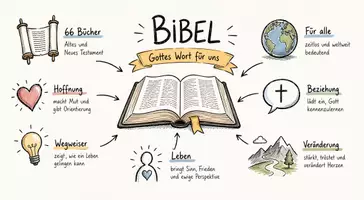 BiBEL
Gottes Wort für uns
66 Bücher
Altes und
Neues Testament
Hoffnung
macht Mut und
gibt Orientierung
Wegweiser
zeigt, wie ein Leben
gelingen kann
Leben
bringt Sinn, Frieden
und ewige Perspektive
Für alle
zeitlos und weltweit
bedeutend
Beziehung
lädt ein, Gott
kennenzulernen
Veränderung
stärkt, tröstet und
verändert Herzen